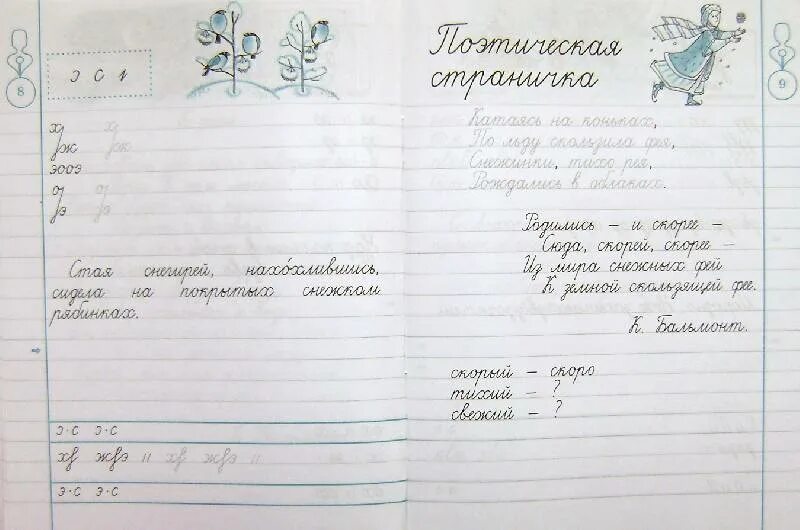 8
э с г
х х
ж ж
эоэ
э э
Стая снегирей, нахо́хлившись,
сидела на покрытых снежком
рябинках.
э·с э·с
э·с э·с
Поэтическая
страничка
9
Катаясь на коньках,
По льду скользила фея,
Снежинки, тихо рея,
Рождались в облаках.
Родились – и скорее –
Сюда, скорей, скорее –
Из мира снежных фей
К земной скользящей фее.
К. Бальмонт.
скорый – скоро
тихий – ?
свежий – ?